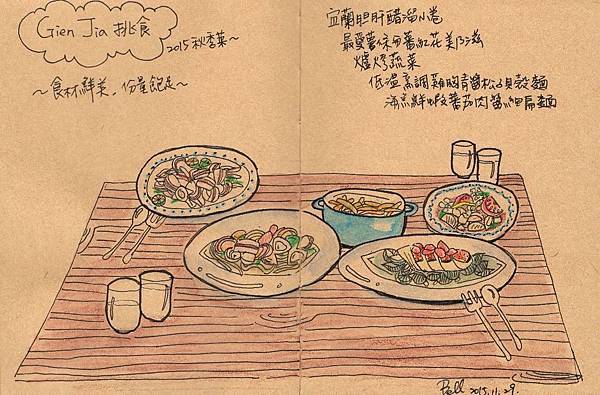 Gien Jia 挑食
2015 秋季菜～
～食材鮮美、份量飽足～
宜蘭胆肝醋溜小卷
最愛蕃紅花美乃滋
爐烤蔬菜
低溫烹調雞胸青醬松子貝殼麵
海鮮鮮蝦蕃茄肉醬細扁麵
Pell 2015.11.29.